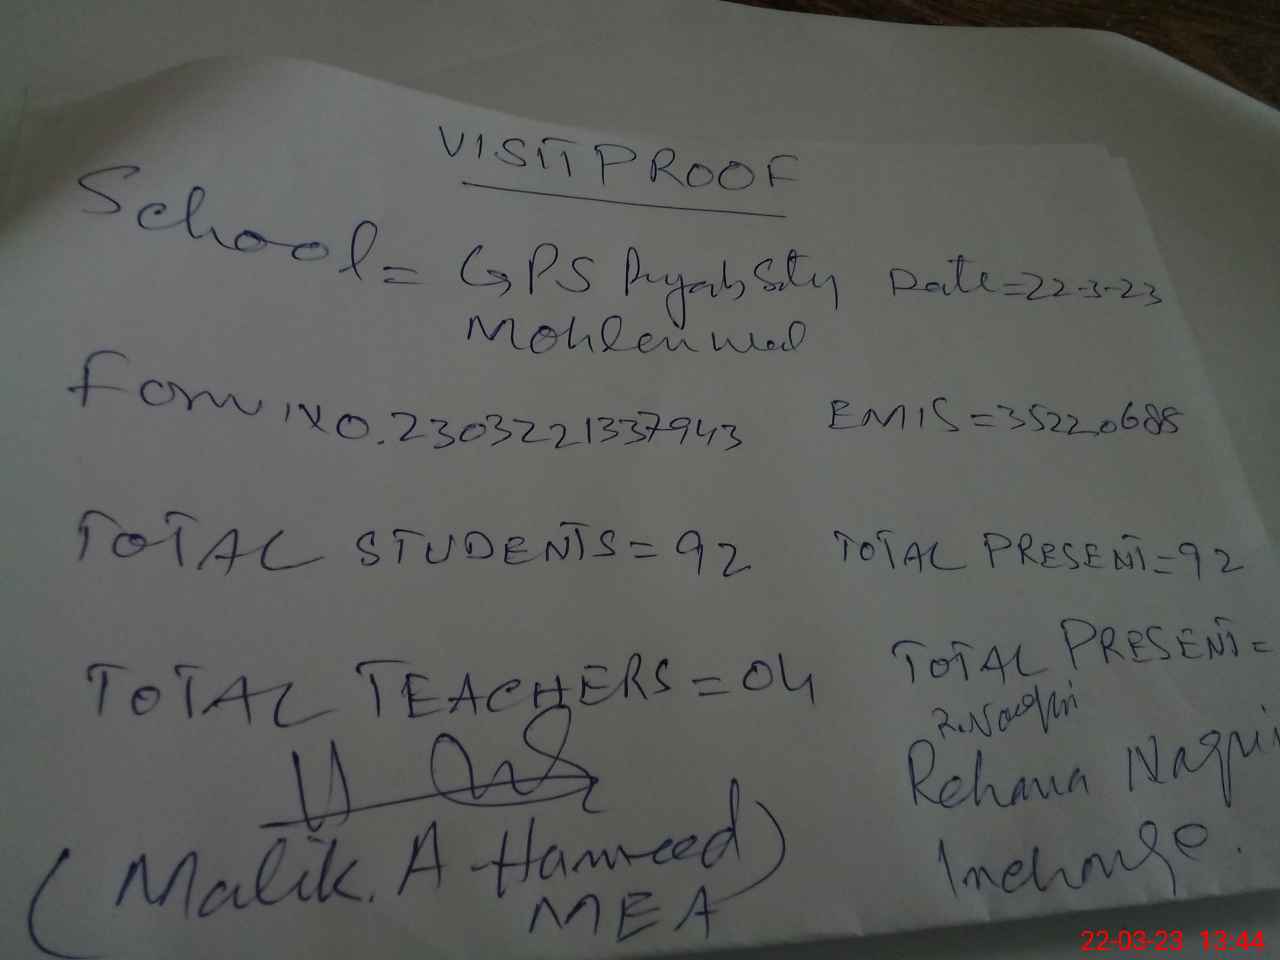 VISIT PROOF
School = GPS Date = 22-3-23
Form No. 2303221337943 EMIS = 35220685
TOTAL STUDENTS = 92 TOTAL PRESENT = 92
TOTAL TEACHERS = 04 TOTAL PRESENT =
R. Naqvi
Rehana Naqvi
(Malik. A Hameed) Incharge.
MEA
22-03-23 13:44